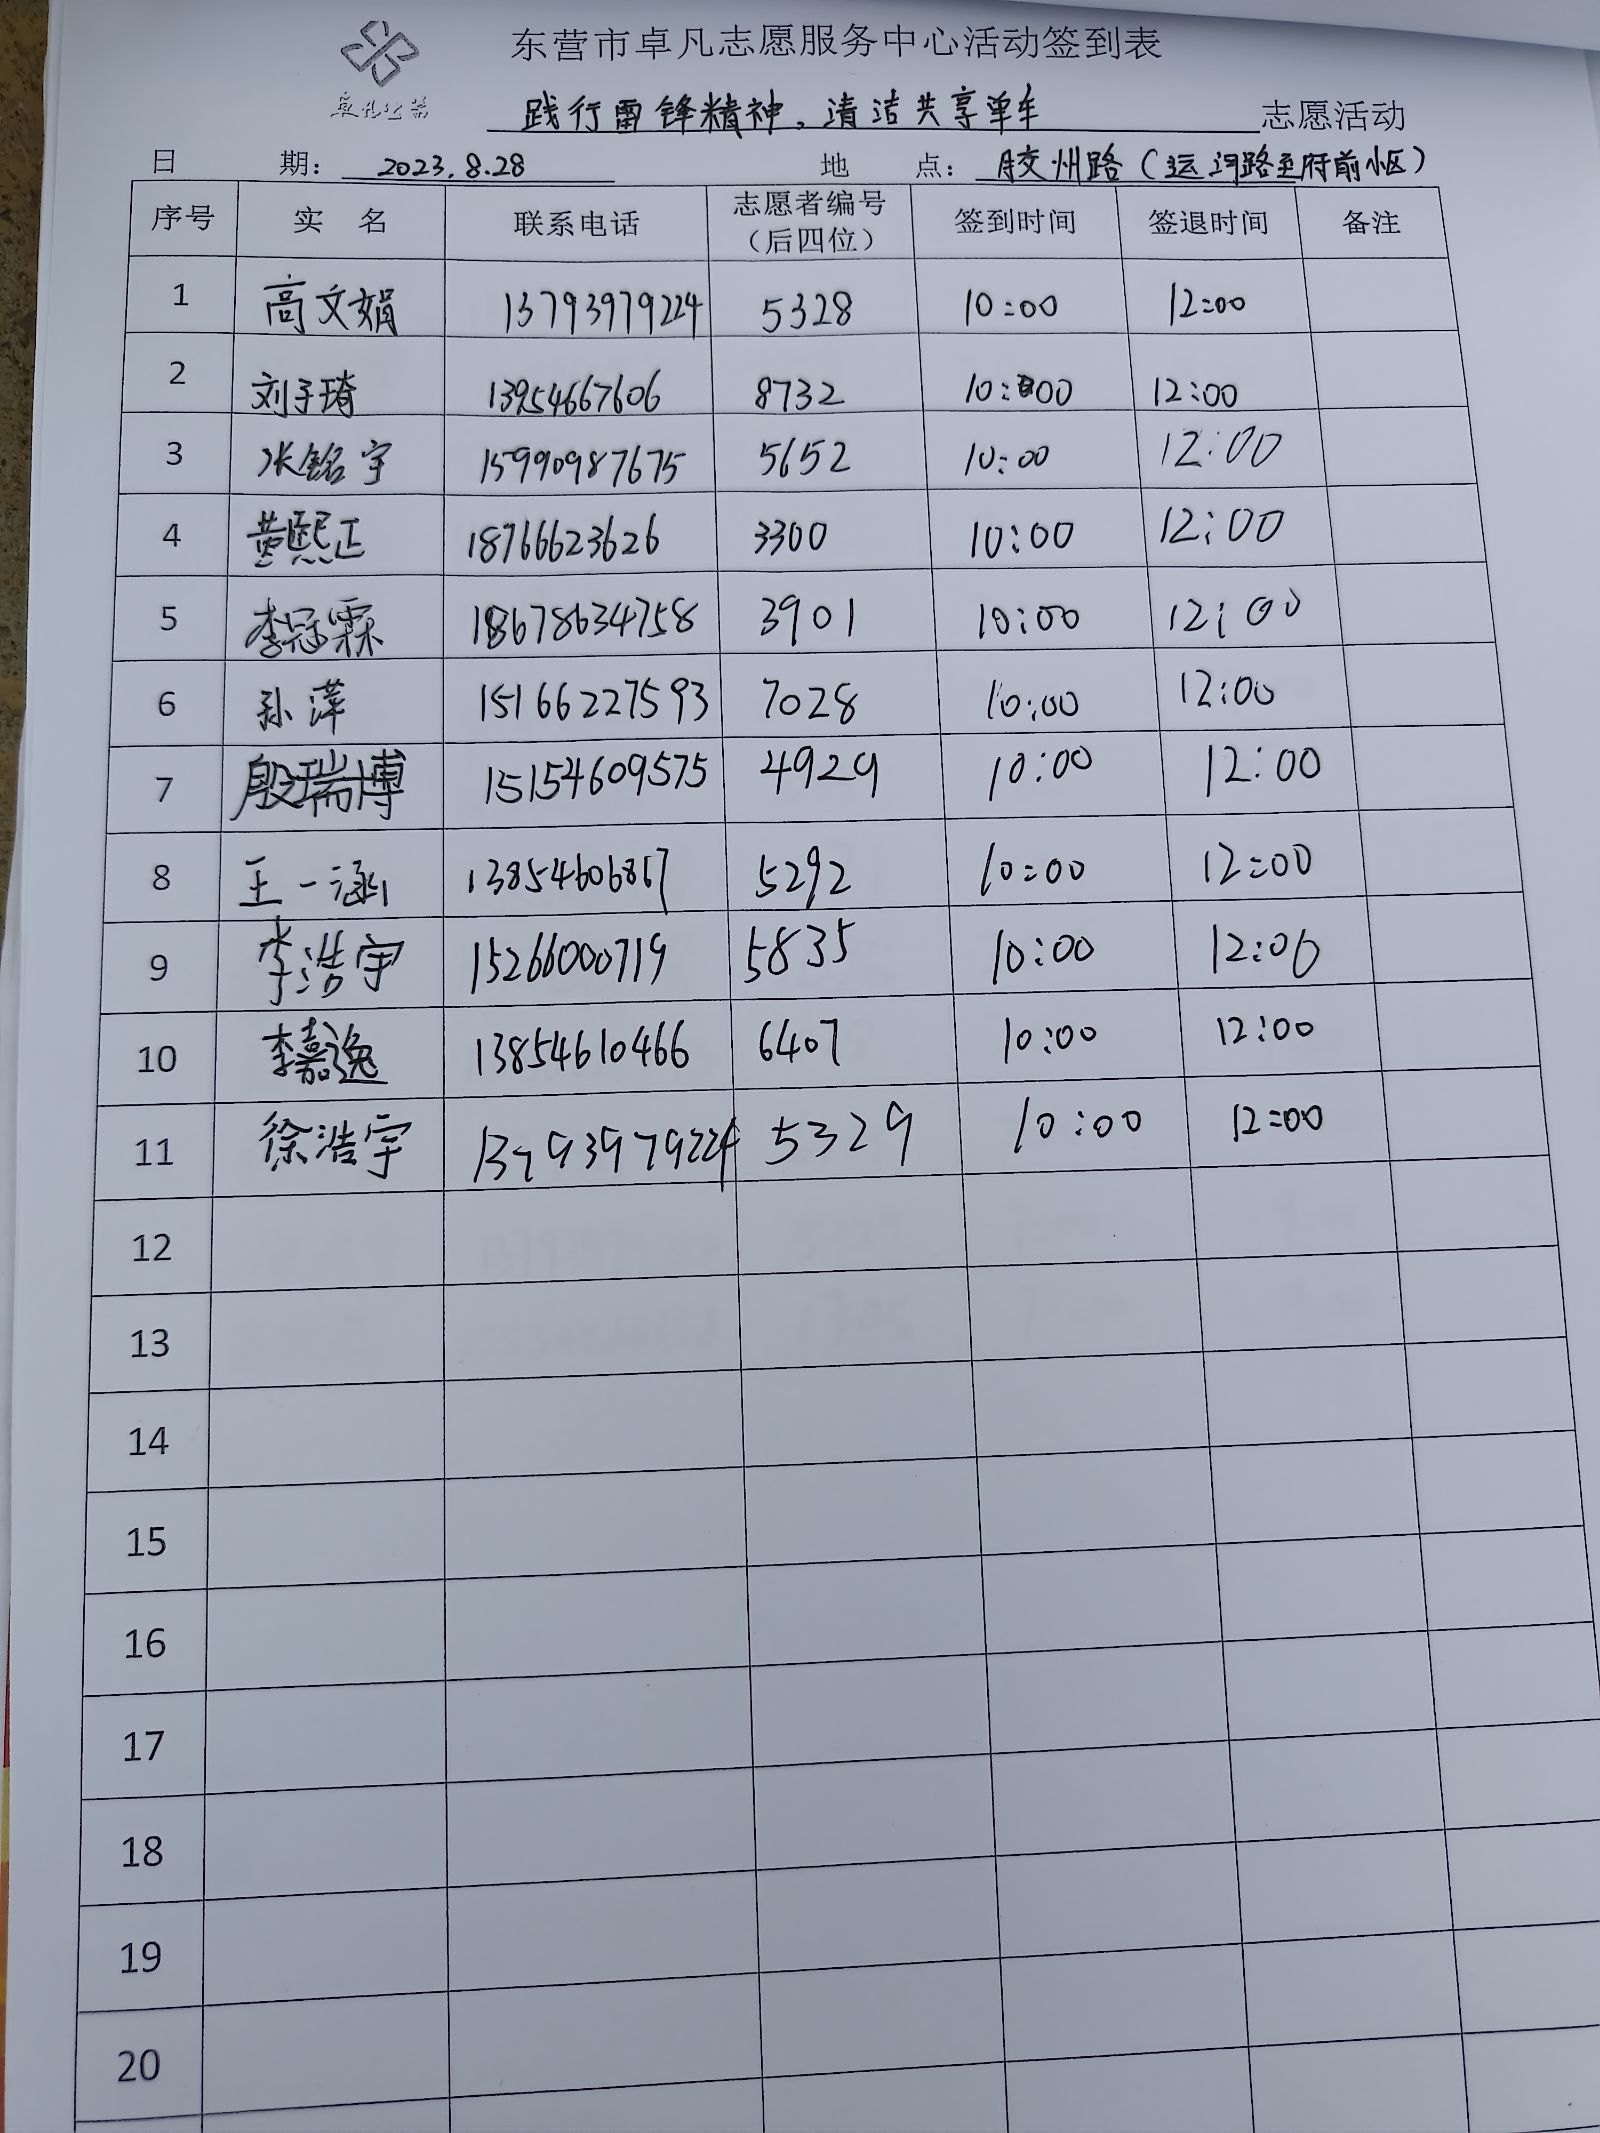 东营市卓凡志愿服务中心活动签到表
卓凡公益
践行雷锋精神,清洁共享单车 志愿活动
日 期: 2023.8.28 地 点: 胶州路(运河路至府前小区)
序号 实 名 联系电话 志愿者编号(后四位) 签到时间 签退时间 备注
1 高文娟 13793979224 5328 10:00 12:00
2 刘子琦 13954667606 8732 10:00 12:00
3 张铭宇 15990987675 5652 10:00 12:00
4 黄熙正 18766623626 3300 10:00 12:00
5 李冠霖 18678634758 3901 10:00 12:00
6 孙萍 15166227593 7028 10:00 12:00
7 殷瑞博 15154609575 4929 10:00 12:00
8 王一涵 13854606867 5292 10:00 12:00
9 李浩宇 15266000719 5835 10:00 12:00
10 李嘉逸 13854610466 6407 10:00 12:00
11 徐浩宇 13793979224 5329 10:00 12:00
12
13
14
15
16
17
18
19
20